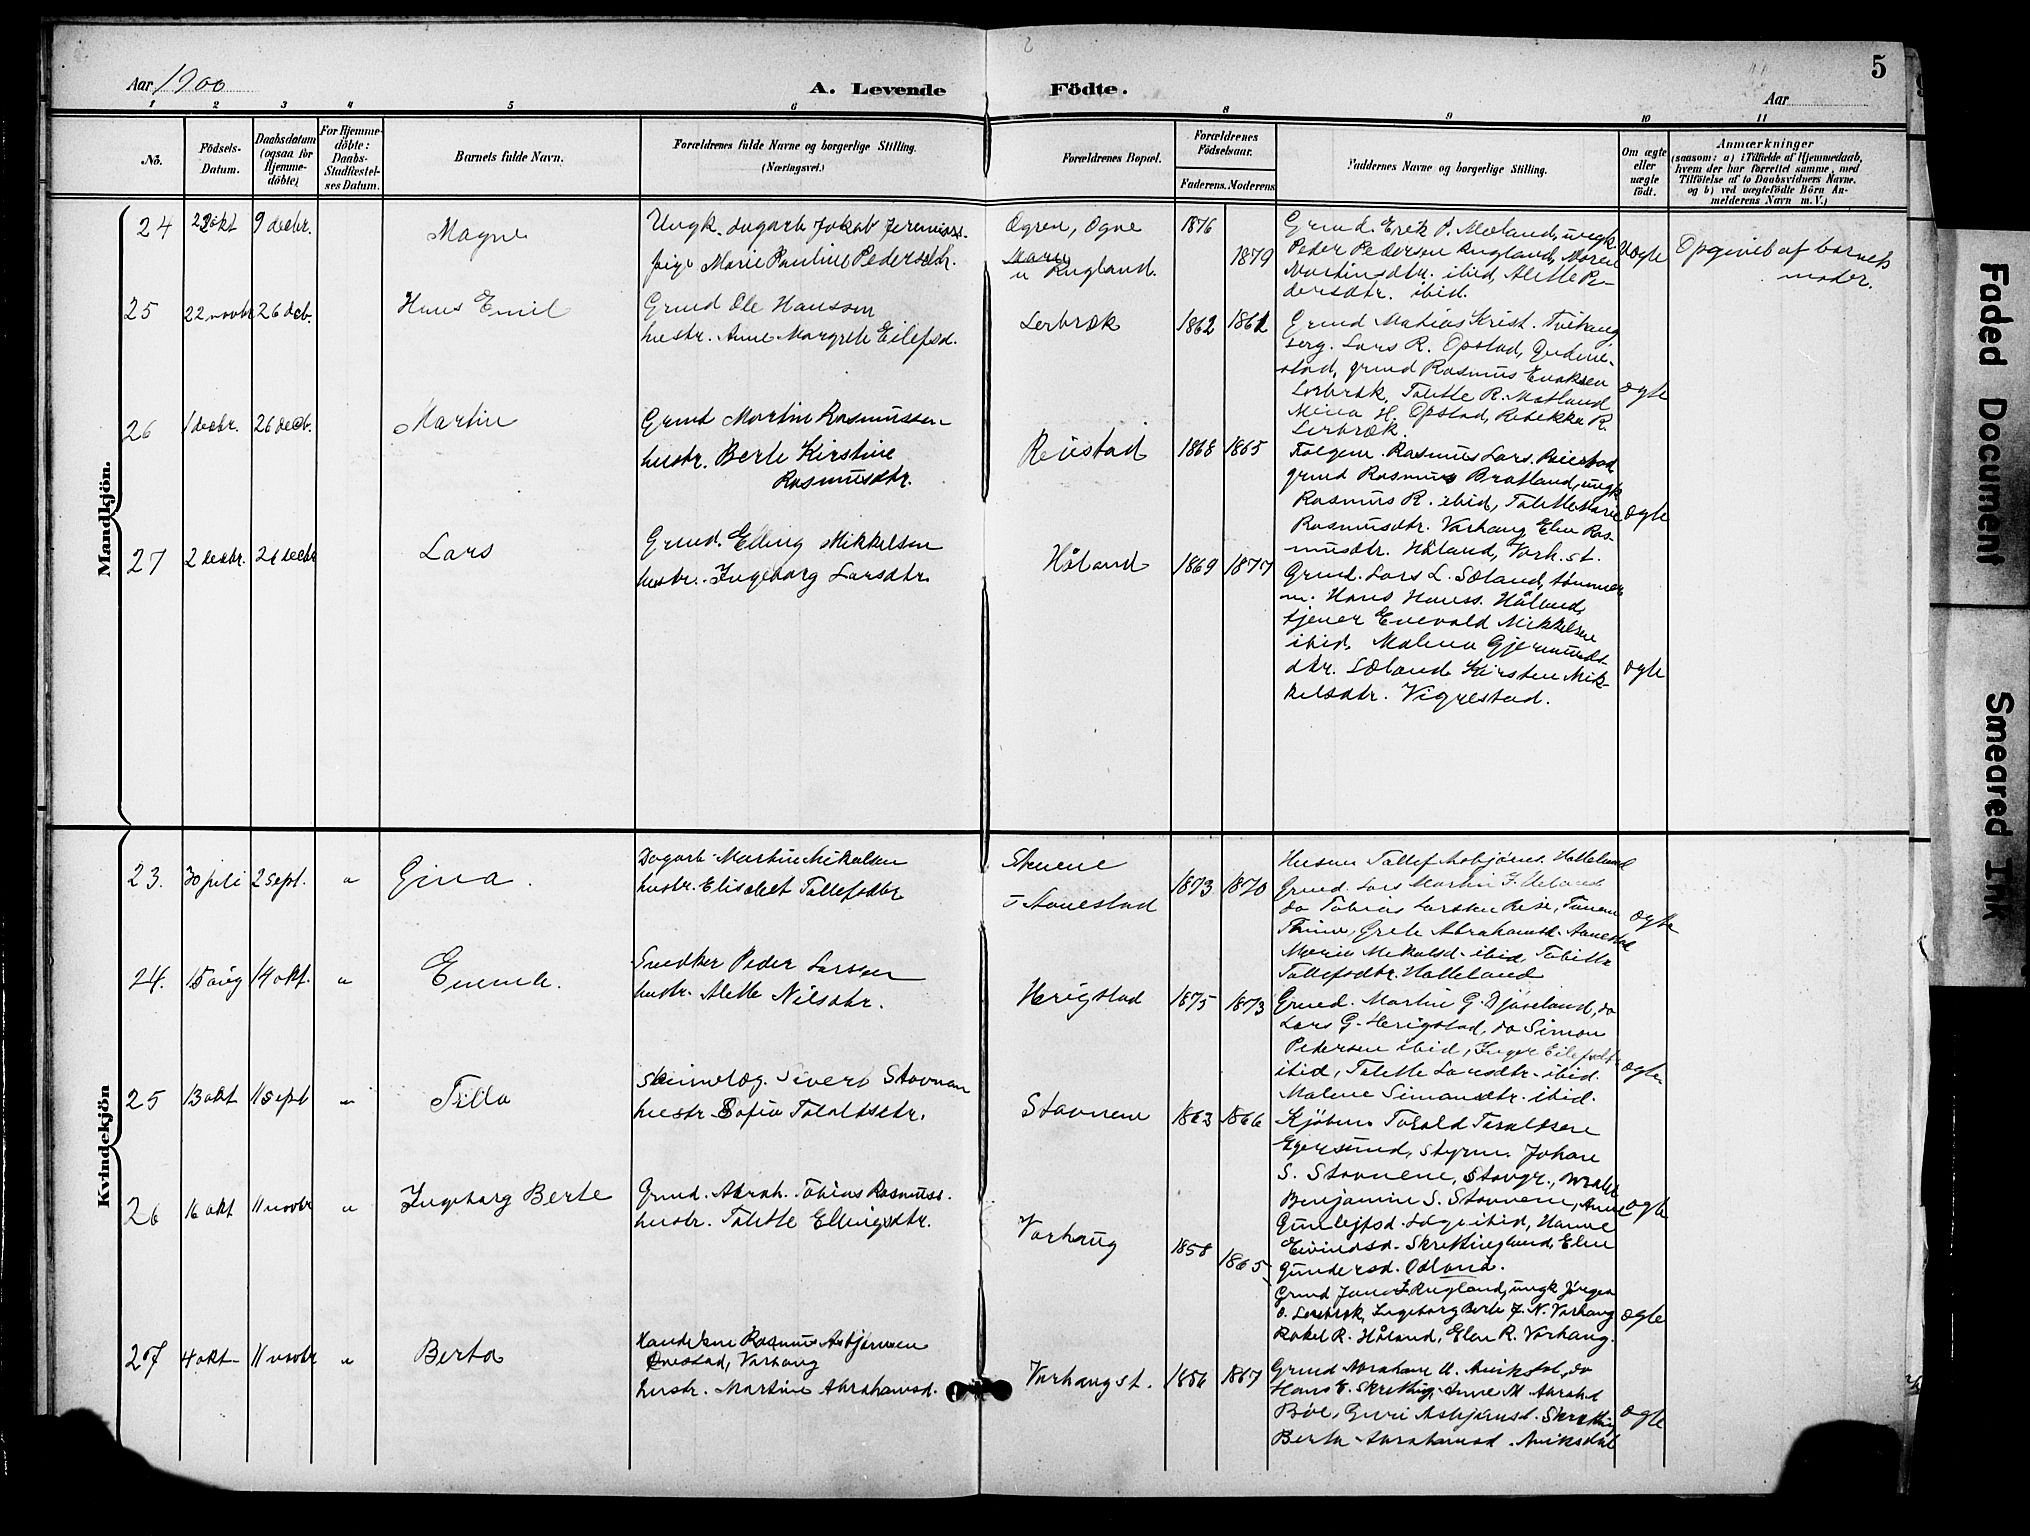 Aar 1900
A. Levende
Födte.
5
Aar
1 2 3 4 5 6 8 9 10 11
Nö.
Födsels-Datum.
Daabsdatum (ogsaa for Hjemme-döbte)
For Hjemme-döbte: Daabs-Stadfæstel-ses Datum.
Barnets fulde Navn.
Forældrenes fulde Navne og borgerlige Stilling.
(Næringsvei.)
Forældrenes Bopæl.
Forældrenes Födselsaar.
Faderens. Moderens
Faddernes Navne og borgerlige Stilling.
Om ægte eller uægte födt.
Anmærkninger
(saasom: a) i Tilfælde af Hjemmedaab,
hvem der har forrettet samme, med
Tilföielse af to Daabsvidners Navne,
og b) ved uægtefödte Börn An-
melderens Navn m.V.)
Mandkjön.
24 22 okt 9 decbr. Magne
Ungk. dagarb Jokab Jeremiass.
pige Marie Pauline Pedersdtr.
Ogren, Ogne
" Rugland.
1876
1879
Grmd. Erik P. Mæland, ungk.
Peder Pedersen Rugland, Maren
Martinsdtr. ibid, Alette Pe-
dersdtr. ibid.
Uægte
Opgivet af barnets
moder.
25 22 novbr 26 decb. Hans Emil
Grmd Ole Hanssen
hustr. Anne Margrete Eilefsd.
Lerbræk 1862 1861
Grmd Matias Krist. Tvihaug
serg. Lars R. Opstad,
grmd Rasmus Enoksen
Lerbræk, Talette R. Matland
Mina H. Opstad, Rebekka R.
Lerbræk.
ægte
26 1 decbr. 26 decb. Martin
Grmd Martin Rasmussen
hustr. Berte Kirstine
Rasmusdtr.
Reiestad 1868 1865
Folgem. Rasmus Lars. Reiestad
grmd Rasmus Bratland, ungk
Rasmus R. ibid, Talette Marie
Rasmusdtr. Varhaug Elen Ras-
musdtr. Håland, Varh. st.
ægte
27 2 decbr. 26 decbr Lars
Grmd. Elling Mikkelsen
hustr. Ingeborg Larsdtr.
Håland 1869 1877
Grmd. Lars L. Sæland, tømmer
m. Hans Hanss. Håland,
tjener Enevald Mikkelsen
ibid, Malena Gjermunds-
dtr. Sæland Kirsten Mik-
kelsdtr. Vigrestad.
ægte
Kvindekjön
23. 30 juli 2 sept. " Gina.
Dagarb. Martin Mikalsen
hustr. Elisabet Tollefsdtr
Stuene
Aanestad
1873 1870
Husm Tollef Asbjørns. Halleland
Grmd. Lars Martin
do Tobias Larsen Reise,
Time, Grete Abrahamsd. Aanestad
Maria Mikalsd. ibid, Tobitta
Tollefsdtr. Halleland
ægte
24. 15 aug 14 okt. " Emma.
Snedker Peder Larsen
hustr. Alette Nilsdtr.
Herigstad 1875 1873
Grmd. Martin G. Djøseland, do
Lars G. Herigstad, do Simon
Petersen ibid, Inger Eilefsdtr
ibid, Talette Larsdtr ibid.
Malene Simonsdtr. ibid.
ægte
25 13 okt 11 sept " Tilla
Sivert Stavnem
hustr. Sofia
Stavnene 1863 1866
Kjøbm Torald
Egersund, styrm. Johan
S. Stavnene, Stavgr.,
Benjamin S. Stavnene, Anne
ibid, Hanne
Eivindsd. Skretteglund, Elen
Gundersd. Odland.
ægte
26 16 okt 11 novbr " Ingeborg Berte
Grmd. Abrah. Tobias Rasmuss.
hustr. Talette Ellingsdtr.
Varhaug 1858
1865
Grmd Rugland, ungk Jørgen
O. Lerbræk, Ingeborg Berte J. N. Varhaug
Rakel R. Håland, Elen R. Varhaug.
ægte
27 4 okt 11 novbr " Berta
Rasmus Asbjørnsen
Varhaug
hustr. Martine Abrahamsd.
Varhaug st. 1856 1867
Grmd Abraham A. Aniksdal, do
Hans E. Skretting, Anne M. Abrahd
Bøe, Guri Asbjørnsd. Skretting
Berta Abrahamsd. Aniksdal
ægte
Faded Document
Smeared Ink